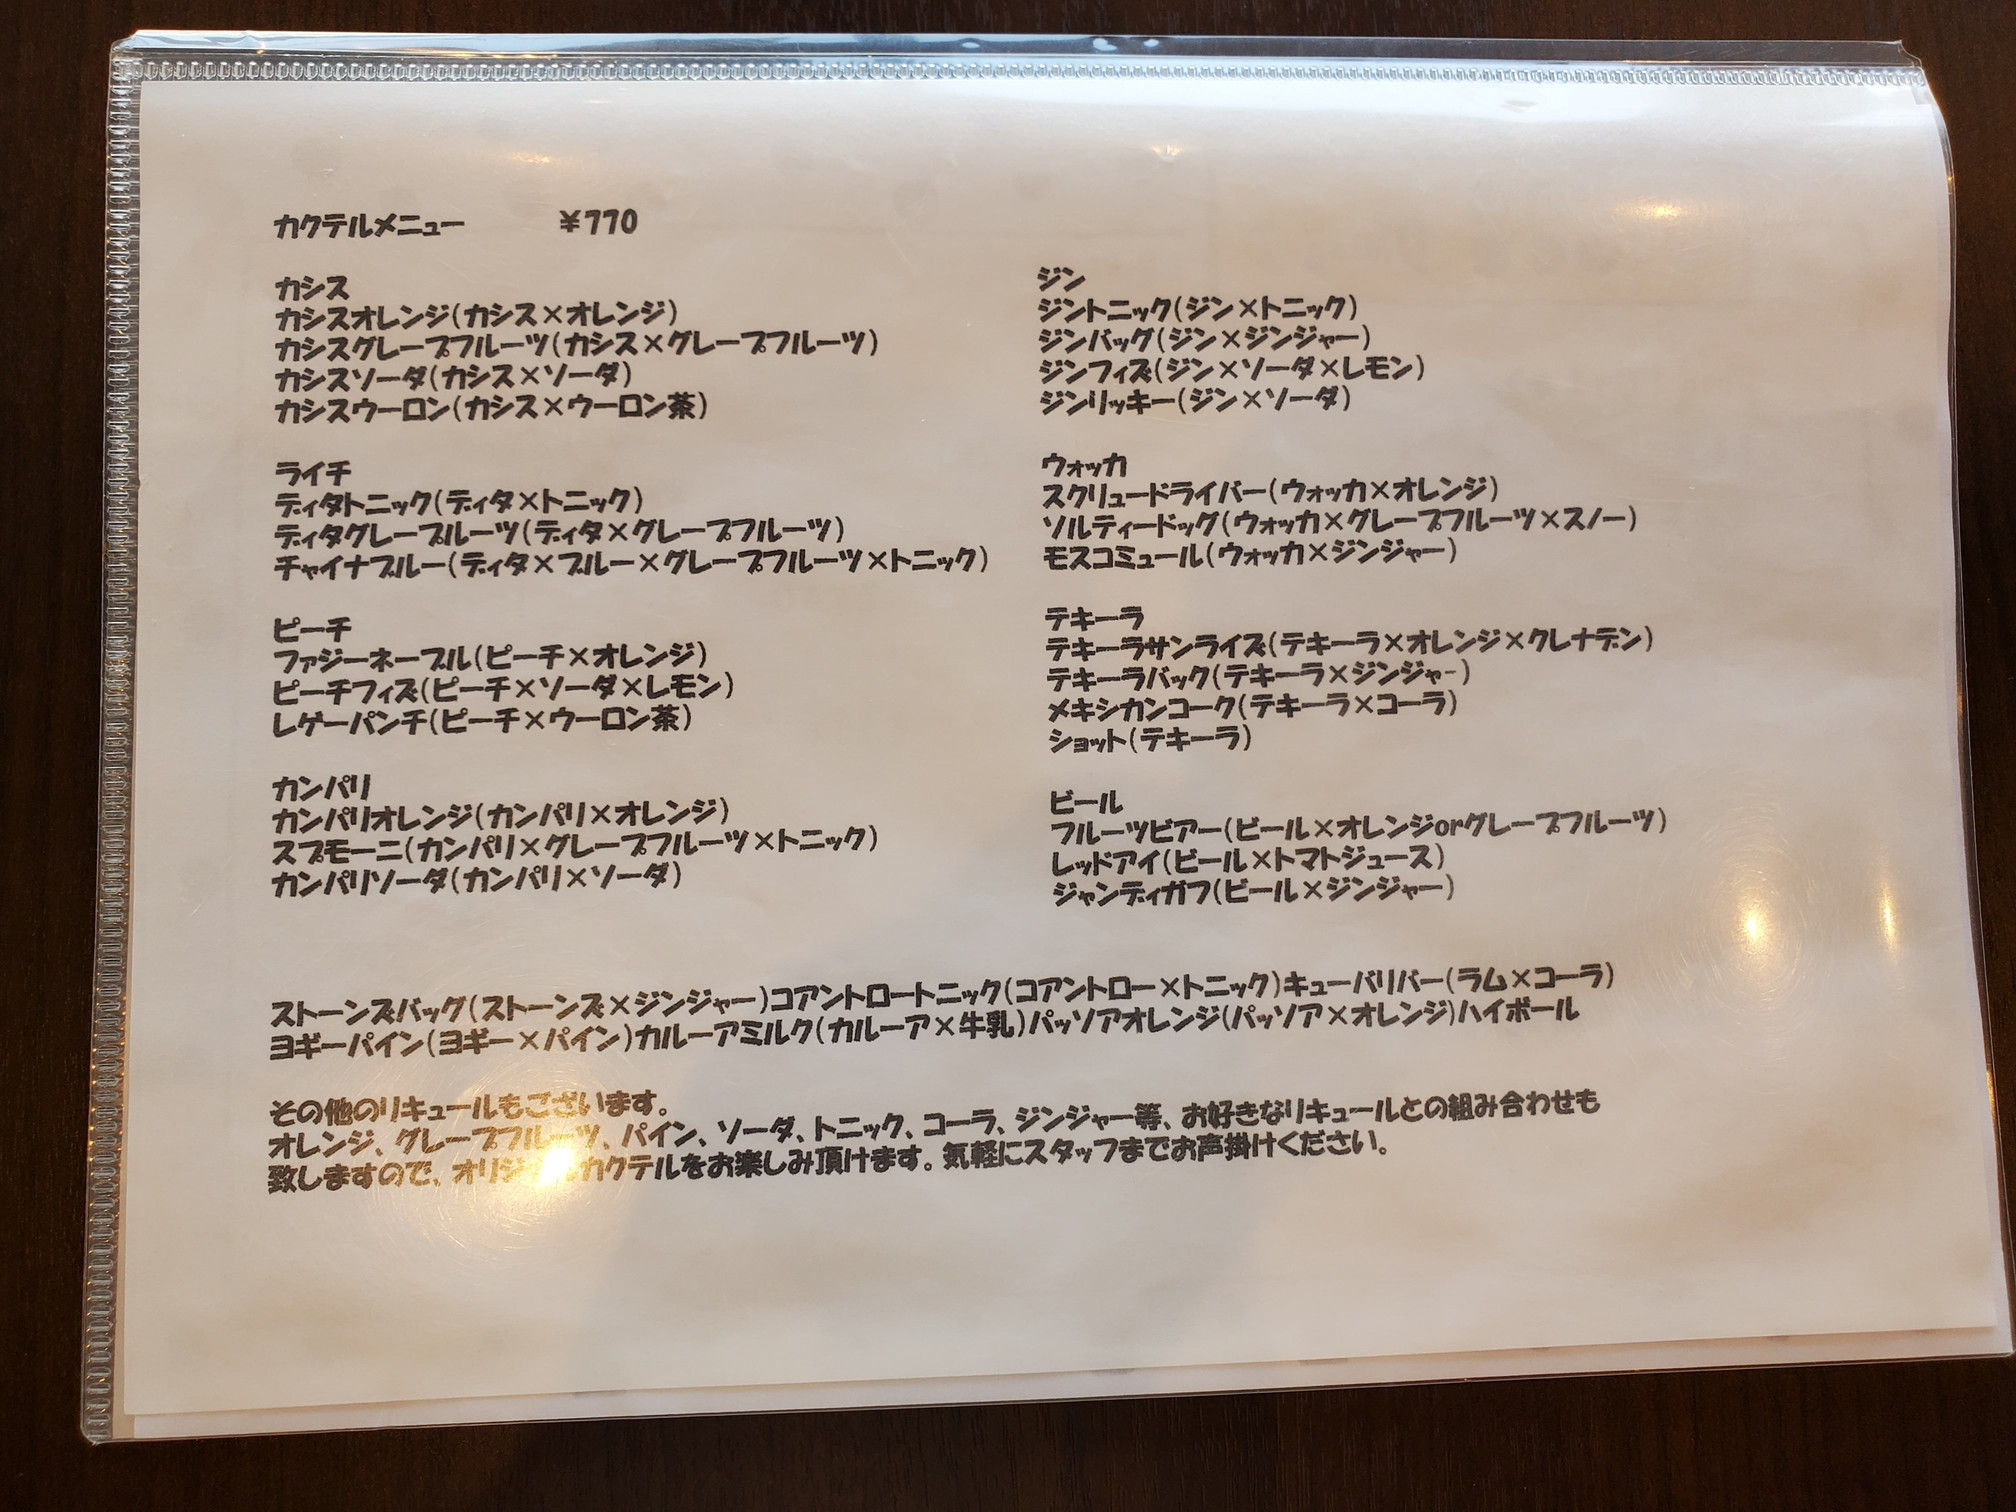 カクテルメニュー ¥770
カシス
カシスオレンジ(カシス×オレンジ)
カシスグレープフルーツ(カシス×グレープフルーツ)
カシスソーダ(カシス×ソーダ)
カシスウーロン(カシス×ウーロン茶)
ライチ
ディタトニック(ディタ×トニック)
ディタグレープルーツ(ディタ×グレープフルーツ)
チャイナブルー(ディタ×ブルー×グレープフルーツ×トニック)
ピーチ
ファジーネーブル(ピーチ×オレンジ)
ピーチフィズ(ピーチ×ソーダ×レモン)
レゲーパンチ(ピーチ×ウーロン茶)
カンパリ
カンパリオレンジ(カンパリ×オレンジ)
スプモーニ(カンパリ×グレープフルーツ×トニック)
カンパリソーダ(カンパリ×ソーダ)
ジン
ジントニック(ジン×トニック)
ジンバッグ(ジン×ジンジャー)
ジンフィズ(ジン×ソーダ×レモン)
ジンリッキー(ジン×ソーダ)
ウォッカ
スクリュードライバー(ウォッカ×オレンジ)
ソルティードッグ(ウォッカ×グレープフルーツ×スノー)
モスコミュール(ウォッカ×ジンジャー)
テキーラ
テキーラサンライズ(テキーラ×オレンジ×クレナデン)
テキーラバック(テキーラ×ジンジャ-)
メキシカンコーク(テキーラ×コーラ)
ショット(テキーラ)
ビール
フルーツビアー(ビール×オレンジorグレープフルーツ)
レッドアイ(ビール×トマトジュース)
ジャンディガフ(ビール×ジンジャー)
ストーンズバッグ(ストーンズ×ジンジャー)コアントロートニック(コアントロー×トニック)キューバリバー(ラム×コーラ)
ヨギーパイン(ヨギー×パイン)カルーアミルク(カルーア×牛乳)パッソアオレンジ(パッソア×オレンジ)ハイボール
その他のリキュールもございます。
オレンジ、グレープフルーツ、パイン、ソーダ、トニック、コーラ、ジンジャー等、お好きなリキュールとの組み合わせも
致しますので、オリジナルカクテルをお楽しみ頂けます。気軽にスタッフまでお声掛けください。